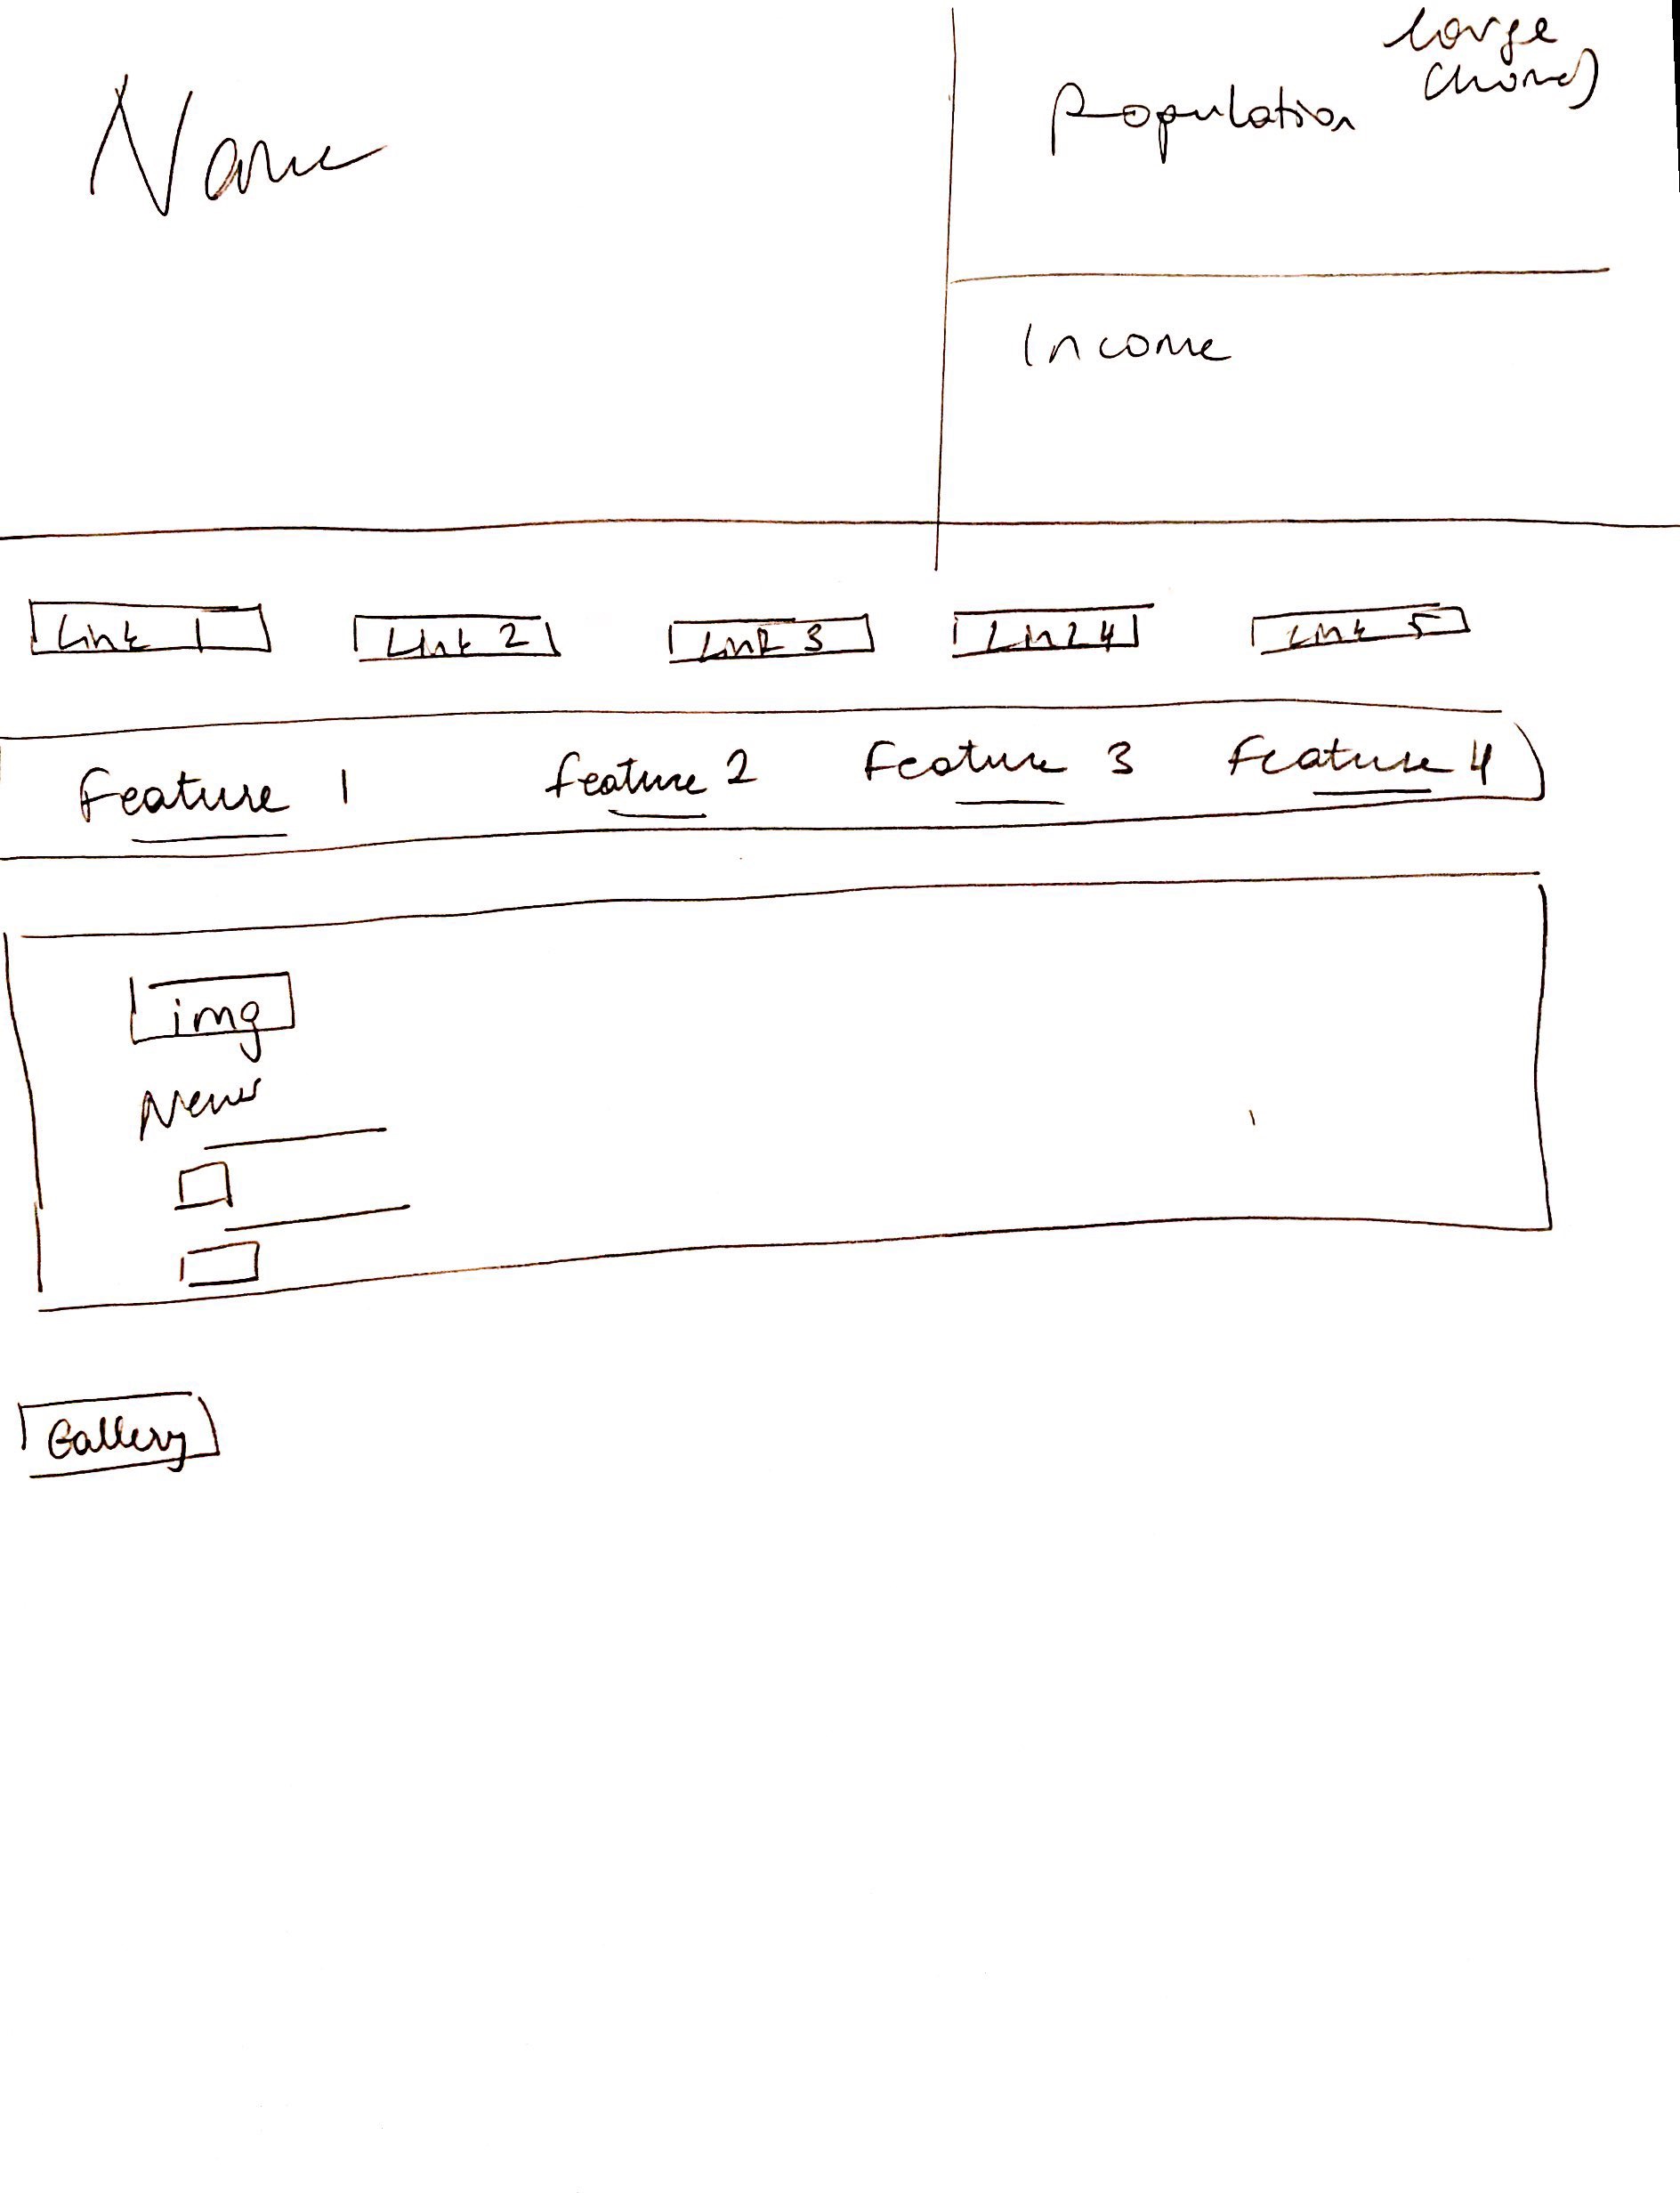 Name
large
Population
Income
Link 1
Link 2
Link 3
Link 4
Link 5
Feature 1
Feature 2
Feature 3
Feature 4
img
News
Gallery